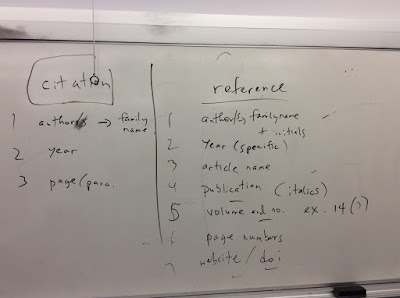 citation
1 author/s → family name
2 year
3 page/para.
reference
1 author/s family name + initials
2 Year (specific)
3 article name
4 publication (italics)
5 volume and no. ex. 14(3)
6 page numbers
7 website / doi